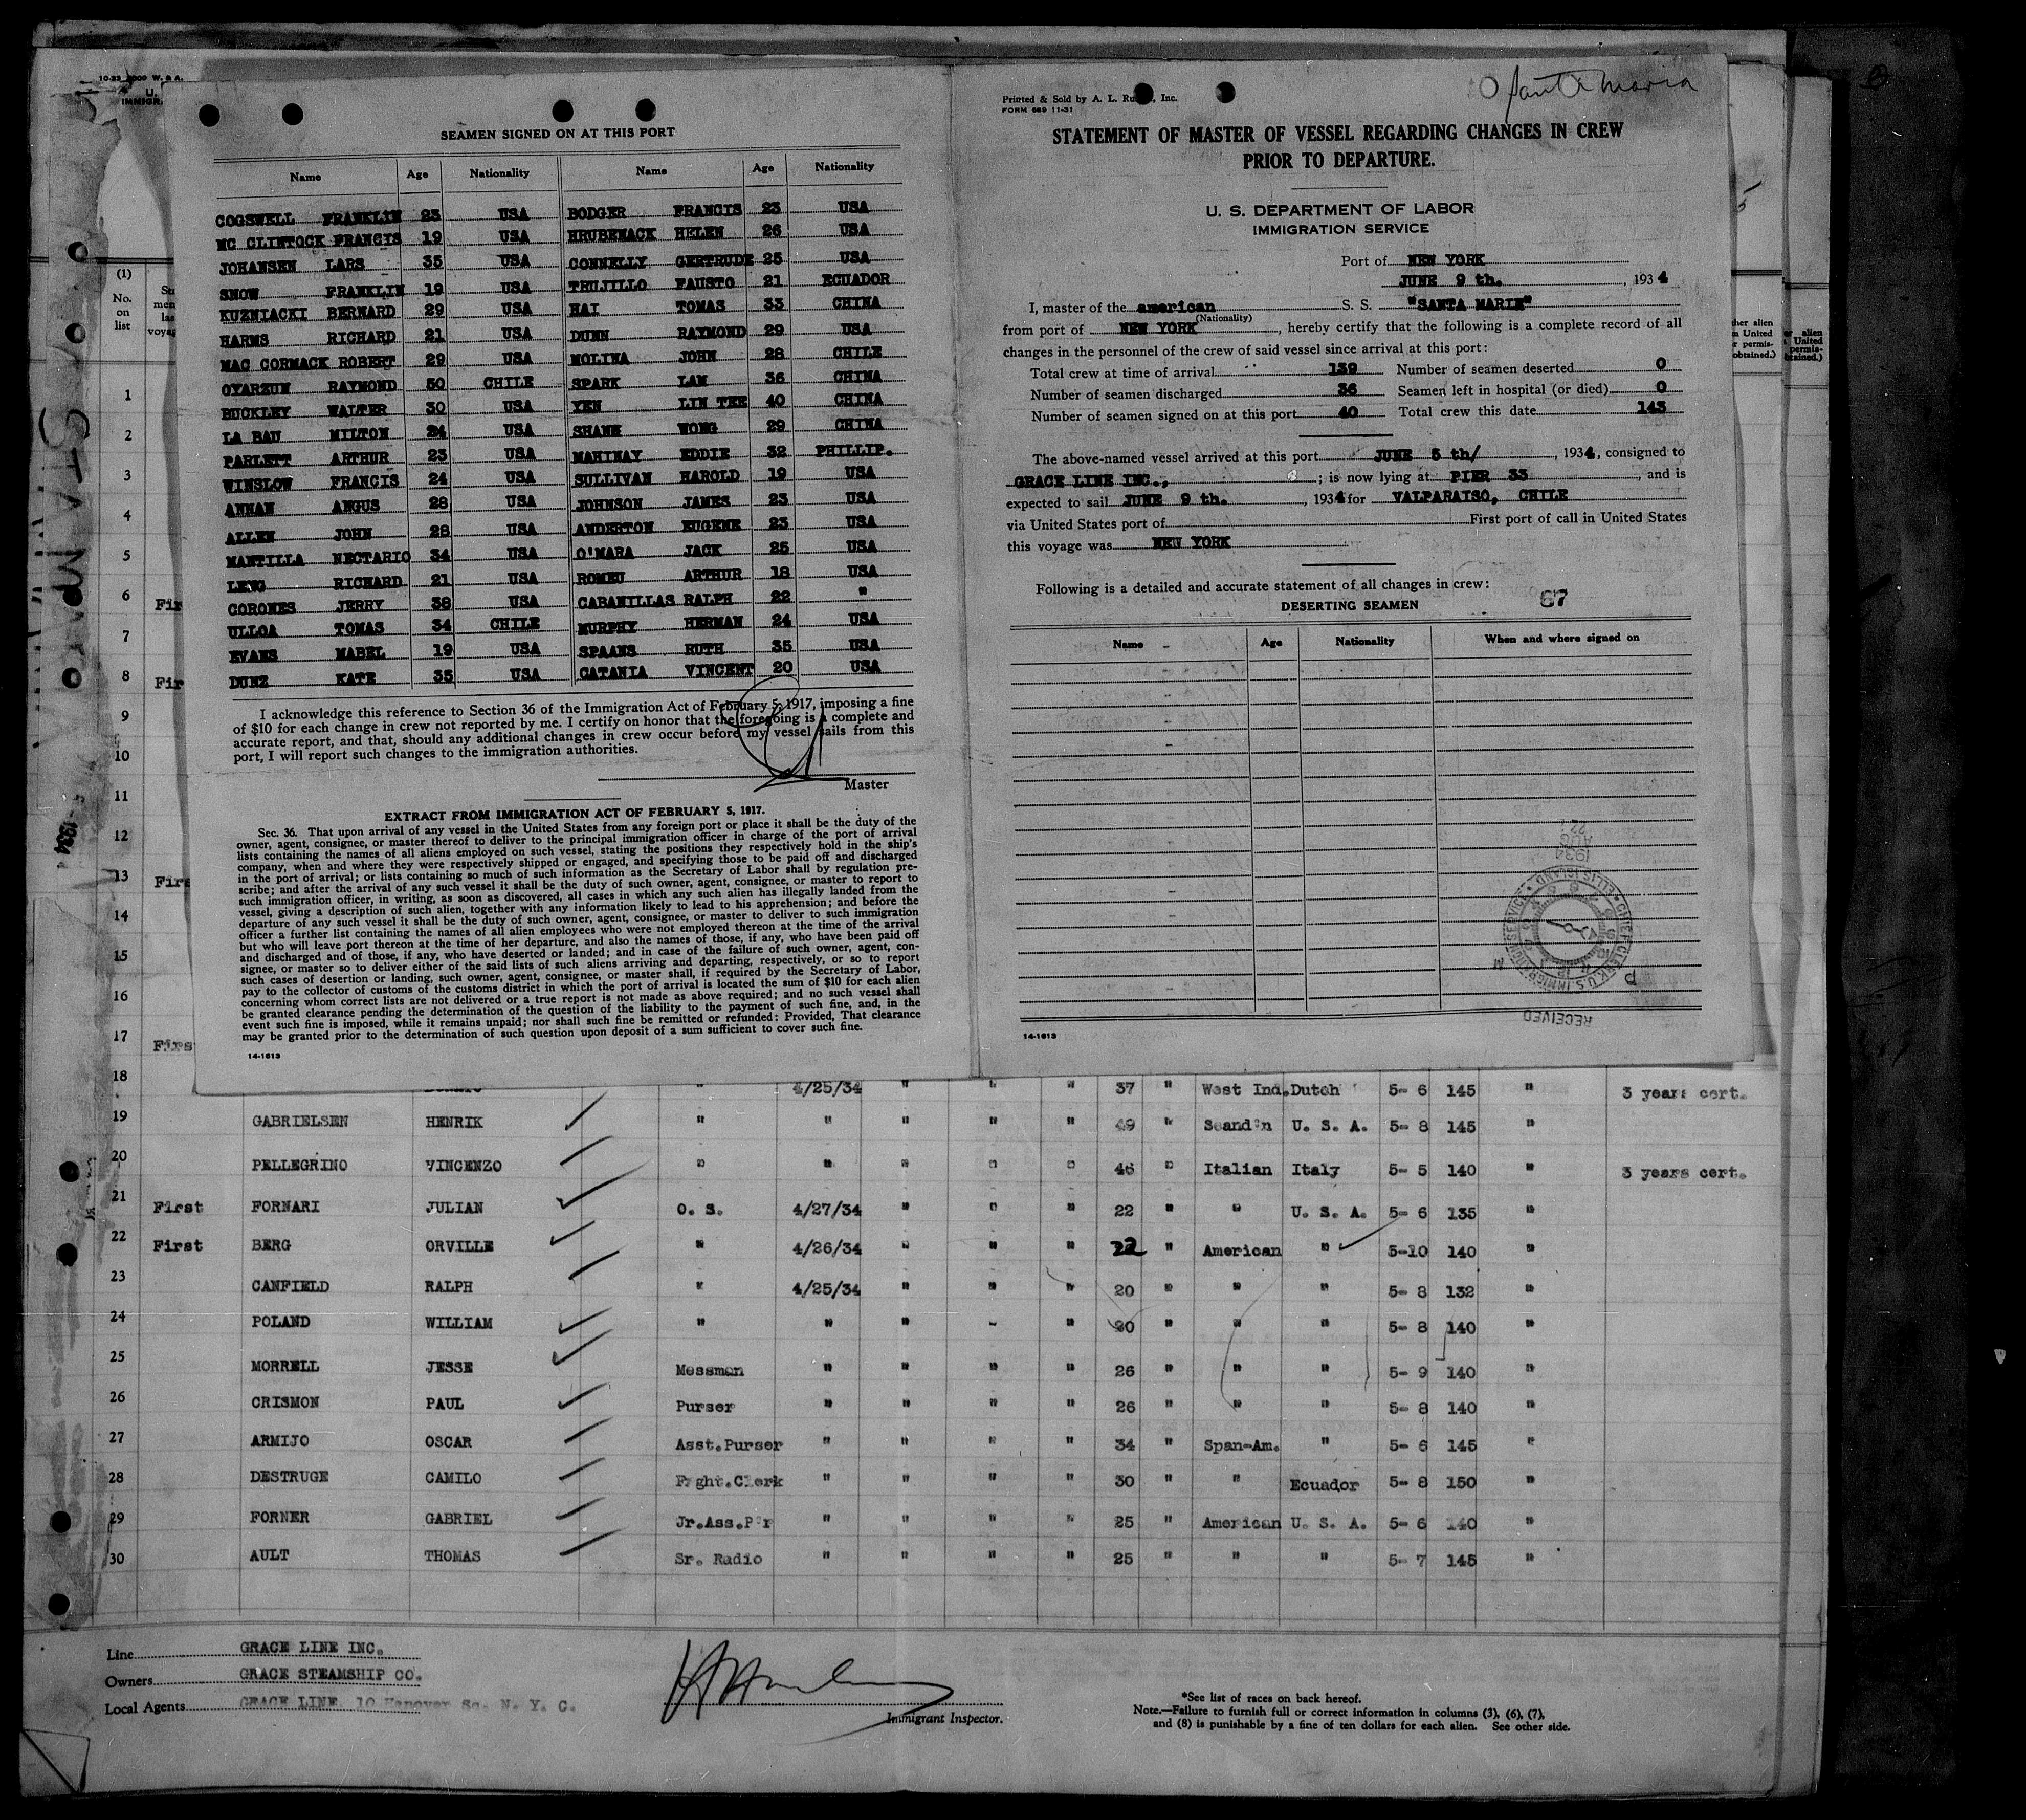 10-33 2000 W. & A.
U.
IMMIGR
SEAMEN SIGNED ON AT THIS PORT
Name Age Nationality Name Age Nationality
COGSWELL FRANKLIN 23 USA BODGER FRANCIS 23 USA
MC CLINTOCK FRANCIS 19 USA HRUBENACK HELEN 26 USA
JOHANSEN LARS 35 USA CONNELLY GERTRUDE 25 USA
SNOW FRANKLIN 19 USA TRUJILLO FAUSTO 21 ECUADOR
KUZNIACKI BERNARD 29 USA HAI TOMAS 33 CHINA
HARMS RICHARD 21 USA DUNN RAYMOND 29 USA
MAC CORMACK ROBERT 29 USA MOLINA JOHN 28 CHILE
OYARZUN RAYMOND 50 CHILE SPARK LAM 36 CHINA
BUCKLEY WALTER 30 USA YEN LIN TEE 40 CHINA
LA BAU MILTON 24 USA SHANE WONG 29 CHINA
PARLETT ARTHUR 23 USA MAHINAY EDDIE 32 PHILLIP.
WINSLOW FRANCIS 24 USA SULLIVAN HAROLD 19 USA
ANNAN ANGUS 28 USA JOHNSON JAMES 23 USA
ALLEN JOHN 28 USA ANDERTON EUGENE 23 USA
MANTILLA NECTARIO 34 USA O'MARA JACK 25 USA
LENG RICHARD 21 USA ROMEU ARTHUR 18 USA
CORONES JERRY 38 USA CABANILLAS RALPH 22 "
ULLOA TOMAS 34 CHILE MURPHY HERMAN 24 USA
EVANS MABEL 19 USA SPAANS RUTH 35 USA
DUNZ KATE 35 USA CATANIA VINCENT 20 USA
I acknowledge this reference to Section 36 of the Immigration Act of February 5, 1917, imposing a fine
of $10 for each change in crew not reported by me. I certify on honor that the foregoing is a complete and
accurate report, and that, should any additional changes in crew occur before my vessel sails from this
port, I will report such changes to the immigration authorities.
Master
EXTRACT FROM IMMIGRATION ACT OF FEBRUARY 5, 1917.
Sec. 36. That upon arrival of any vessel in the United States from any foreign port or place it shall be the duty of the
owner, agent, consignee, or master thereof to deliver to the principal immigration officer in charge of the port of arrival
lists containing the names of all aliens employed on such vessel, stating the positions they respectively hold in the ship's
company, when and where they were respectively shipped or engaged, and specifying those to be paid off and discharged
in the port of arrival; or lists containing so much of such information as the Secretary of Labor shall by regulation pre-
scribe; and after the arrival of any such vessel it shall be the duty of such owner, agent, consignee, or master to report to
such immigration officer, in writing, as soon as discovered, all cases in which any such alien has illegally landed from the
vessel, giving a description of such alien, together with any information likely to lead to his apprehension; and before the
departure of any such vessel it shall be the duty of such owner, agent, consignee, or master to deliver to such immigration
officer a further list containing the names of all alien employees who were not employed thereon at the time of the arrival
but who will leave port thereon at the time of her departure, and also the names of those, if any, who have been paid off
and discharged and of those, if any, who have deserted or landed; and in case of the failure of such owner, agent, con-
signee, or master so to deliver either of the said lists of such aliens arriving and departing, respectively, or so to report
such cases of desertion or landing, such owner, agent, consignee, or master shall, if required by the Secretary of Labor,
pay to the collector of customs of the customs district in which the port of arrival is located the sum of $10 for each alien
concerning whom correct lists are not delivered or a true report is not made as above required; and no such vessel shall
be granted clearance pending the determination of the question of the liability to the payment of such fine, and, in the
event such fine is imposed, while it remains unpaid; nor shall such fine be remitted or refunded: Provided, That clearance
may be granted prior to the determination of such question upon deposit of a sum sufficient to cover such fine.
14-1613
Santa Maria
Printed & Sold by A. L. Ru , Inc.
FORM 689 11-31
STATEMENT OF MASTER OF VESSEL REGARDING CHANGES IN CREW
PRIOR TO DEPARTURE.
U. S. DEPARTMENT OF LABOR
IMMIGRATION SERVICE
Port of NEW YORK
JUNE 9 th. , 1934
I, master of the american S. S. "SANTA MARIE"
(Nationality)
from port of NEW YORK , hereby certify that the following is a complete record of all
changes in the personnel of the crew of said vessel since arrival at this port:
Total crew at time of arrival 139 Number of seamen deserted 0
Number of seamen discharged 36 Seamen left in hospital (or died) 0
Number of seamen signed on at this port 40 Total crew this date 143
The above-named vessel arrived at this port JUNE 5 th/ , 1934, consigned to
GRACE LINE INC., ; is now lying at PIER 33 , and is
expected to sail JUNE 9 th. , 1934 for VALPARAISO, CHILE
via United States port of First port of call in United States
this voyage was NEW YORK
Following is a detailed and accurate statement of all changes in crew:
DESERTING SEAMEN 67
Name Age Nationality When and where signed on
1934
AUG
22
CHIEF CLERK U.S. IMMIGRATION SERVICE ELLIS ISLAND
RECEIVED
14-1613
(1)
No.
on
list
1
2
3
4
5
6 Fir
7
8 Fir
9
10
11
12
13 Firs
14
15
16
17 Firs
18 4/25/34 " " " 37 " West Ind. Dutch 5- 6 145 " 3 years cert.
19 GABRIELSEN HENRIK " " " " " 49 " Scand'n U. S. A. 5- 8 145 "
20 PELLEGRINO VINCENZO " " " " " 46 " Italian Italy 5- 5 140 " 3 years cert.
21 First FORNARI JULIAN O. S. 4/27/34 " " " 22 " " U. S. A. 5- 6 135 "
22 First BERG ORVILLE " 4/26/34 " " " 22 " American " 5-10 140 "
23 CANFIELD RALPH " 4/25/34 " " " 20 " " " 5- 8 132 "
24 POLAND WILLIAM " " " " " 20 " " " 5- 8 140 "
25 MORRELL JESSE Messman " " " " 26 " " " 5- 9 140 "
26 CRISMON PAUL Purser " " " " 26 " " " 5- 8 140 "
27 ARMIJO OSCAR Asst.Purser " " " " 34 " Span-Am. " 5- 6 145 "
28 DESTRUGE CAMILO Frght.Clerk " " " " 30 " " Ecuador 5- 8 150 "
29 FORNER GABRIEL Jr.Ass.P'r " " " " 25 " American U. S. A. 5- 6 140 "
30 AULT THOMAS Sr. Radio " " " " 25 " " " 5- 7 145 "
Line GRACE LINE INC.
Owners GRACE STEAMSHIP CO.
Local Agents GRACE LINE, 10 Hanover Sq. N. Y. C.
Immigrant Inspector.
*See list of races on back hereof.
Note.—Failure to furnish full or correct information in columns (3), (6), (7),
and (8) is punishable by a fine of ten dollars for each alien. See other side.